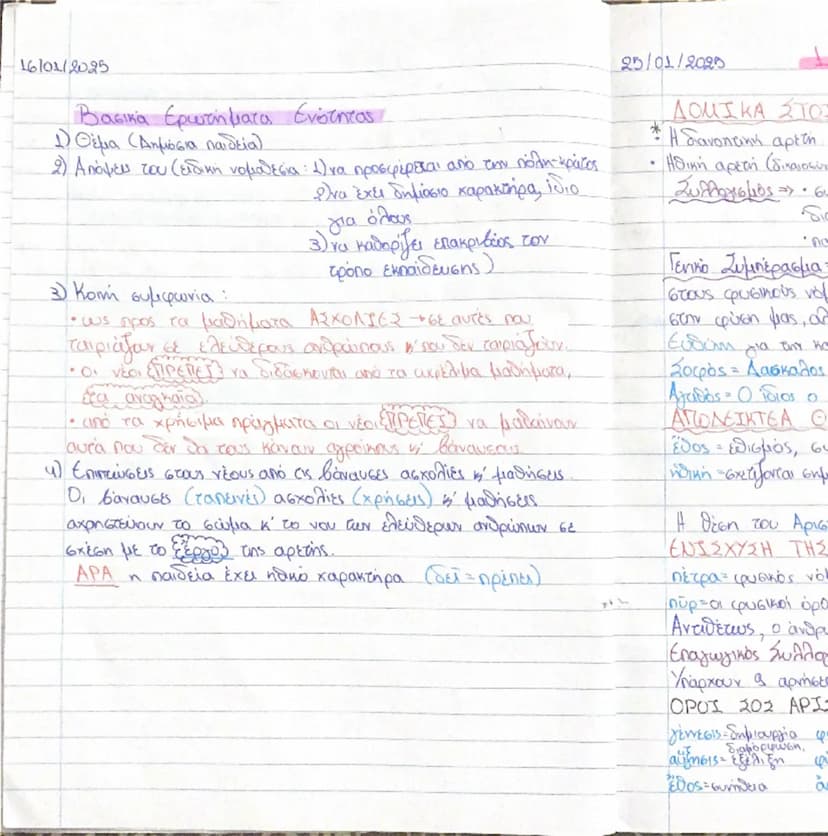 16/01/2025
Βασικά Ερωτήματα Ενότητας
1) Θέμα (Δημόσια παιδεία)
2) Απόψεις του (ειδική νομοθεσία: 1) να προσφέρεται από την πόλη-κράτος
2) να έχει δημόσιο χαρακτήρα, ίδιο
για όλους
3) να καθορίζει επακριβώς τον
τρόπο εκπαίδευσης)
3) Κοινή συμφωνία:
• ως προς τα μαθήματα ΑΣΧΟΛΙΕΣ → σε αυτές που
ταιριάζουν σε ελεύθερους ανθρώπους κ' που δεν ταιριάζουν.
• οι νέοι ΠΡΕΠΕΙ να διδάσκονται από τα ωφέλιμα μαθήματα,
τα αναγκαία.
• από τα χρήσιμα πράγματα οι νέοι ΠΡΕΠΕΙ να μαθαίνουν
αυτά που δεν θα τους κάνουν αγροίκους κ' βάναυσους
4) Επιπτώσεις στους νέους από τις βάναυσες ασχολίες κ' μαθήσεις.
Οι βάναυσες (ταπεινές) ασχολίες (χρήσεις) κ' μαθήσεις
αχρηστεύουν το σώμα κ' το νου των ελεύθερων ανθρώπων σε
σχέση με το έργο της αρετής.
ΑΡΑ η παιδεία έχει ηθικό χαρακτήρα (δεῖ = πρέπει)
25/01/2025
ΔΟΜΙΚΑ ΣΤΟ
* Η διανοητική αρετή
• Ηθική αρετή (δικαιοσύν
Συλλογισμός ⇒ •
Γενικό Συμπέρασμα:
στους φυσικούς νό
στην φύση μας, αλ
Ευθύνη για την κα
Σοφός = Δάσκαλος
Αγαθός = Ο ίδιος ο
ΑΠΟΔΕΙΚΤΕΑ Θ
ἔθος = εθισμός, συ
ἠθική = σχετίζονται
Η θέση του Αρισ
ΕΝΙΣΧΥΣΗ ΤΗΣ
πέτρα = φυσικός νό
πῦρ = οι φυσικοί όρο
Αντιθέτως, ο άνθρ
Επαγωγικός Συλλο
Υπάρχουν 2 αρνήσε
ΟΡΟΙ ΣΟΣ ΑΡΙΣ
γένεσις = δημιουργία
διαμόρφωση,
αὔξησις = εξέλιξη
ἔθος = συνήθεια